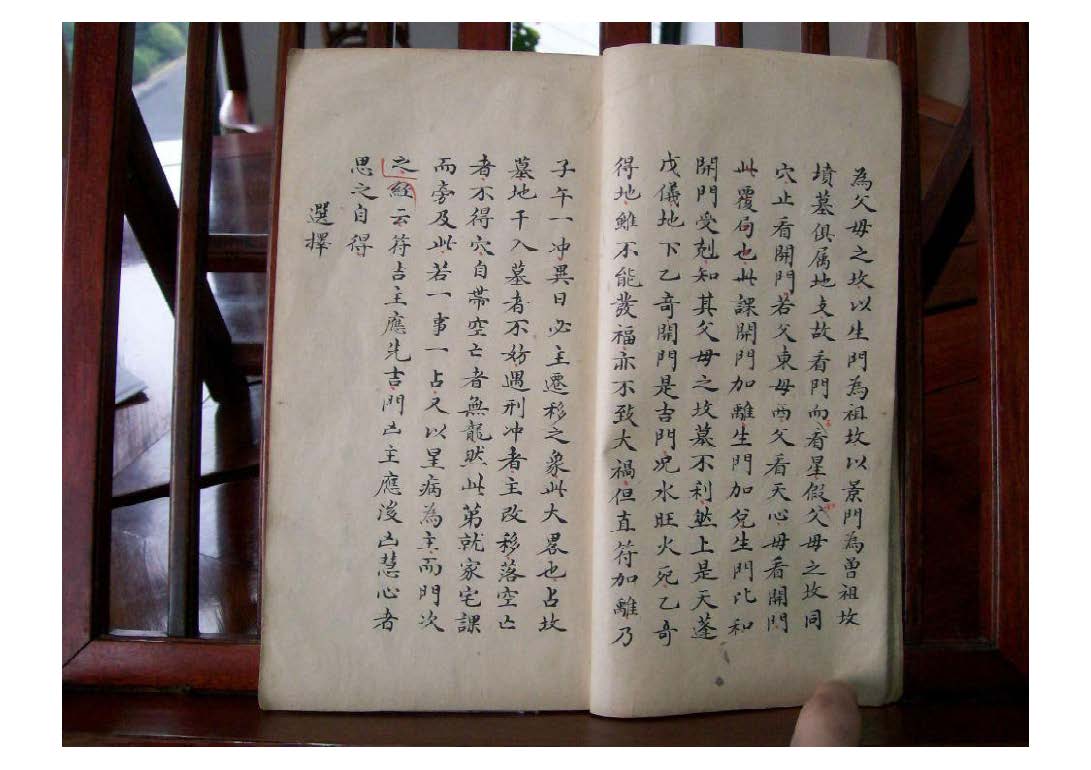 為父母之坟以生門為祖坟以景門為曽祖坟
墳墓俱属地支故看門而看星假父母之坟同
穴止看開門若父東母西父看天心母看開門
此覆局也此課開門加離生門加兌生門比和
開門受剋知其父母之坟墓不利然上是天蓬
戊儀地下乙奇開門是吉門况水旺火死乙奇
得地雖不能發福亦不致大禍但直符加離乃
子午一冲異日必主遷移之象此大畧也占坟
墓地干入墓者不妨遇刑冲者主改移落空亡
者不得穴自帯空亡者無龍然此第就家宅課
而旁及此若一事一占又以星病為主而門次
之經云符吉主應先吉門凶主應後凶慧心者
思之自得
選擇